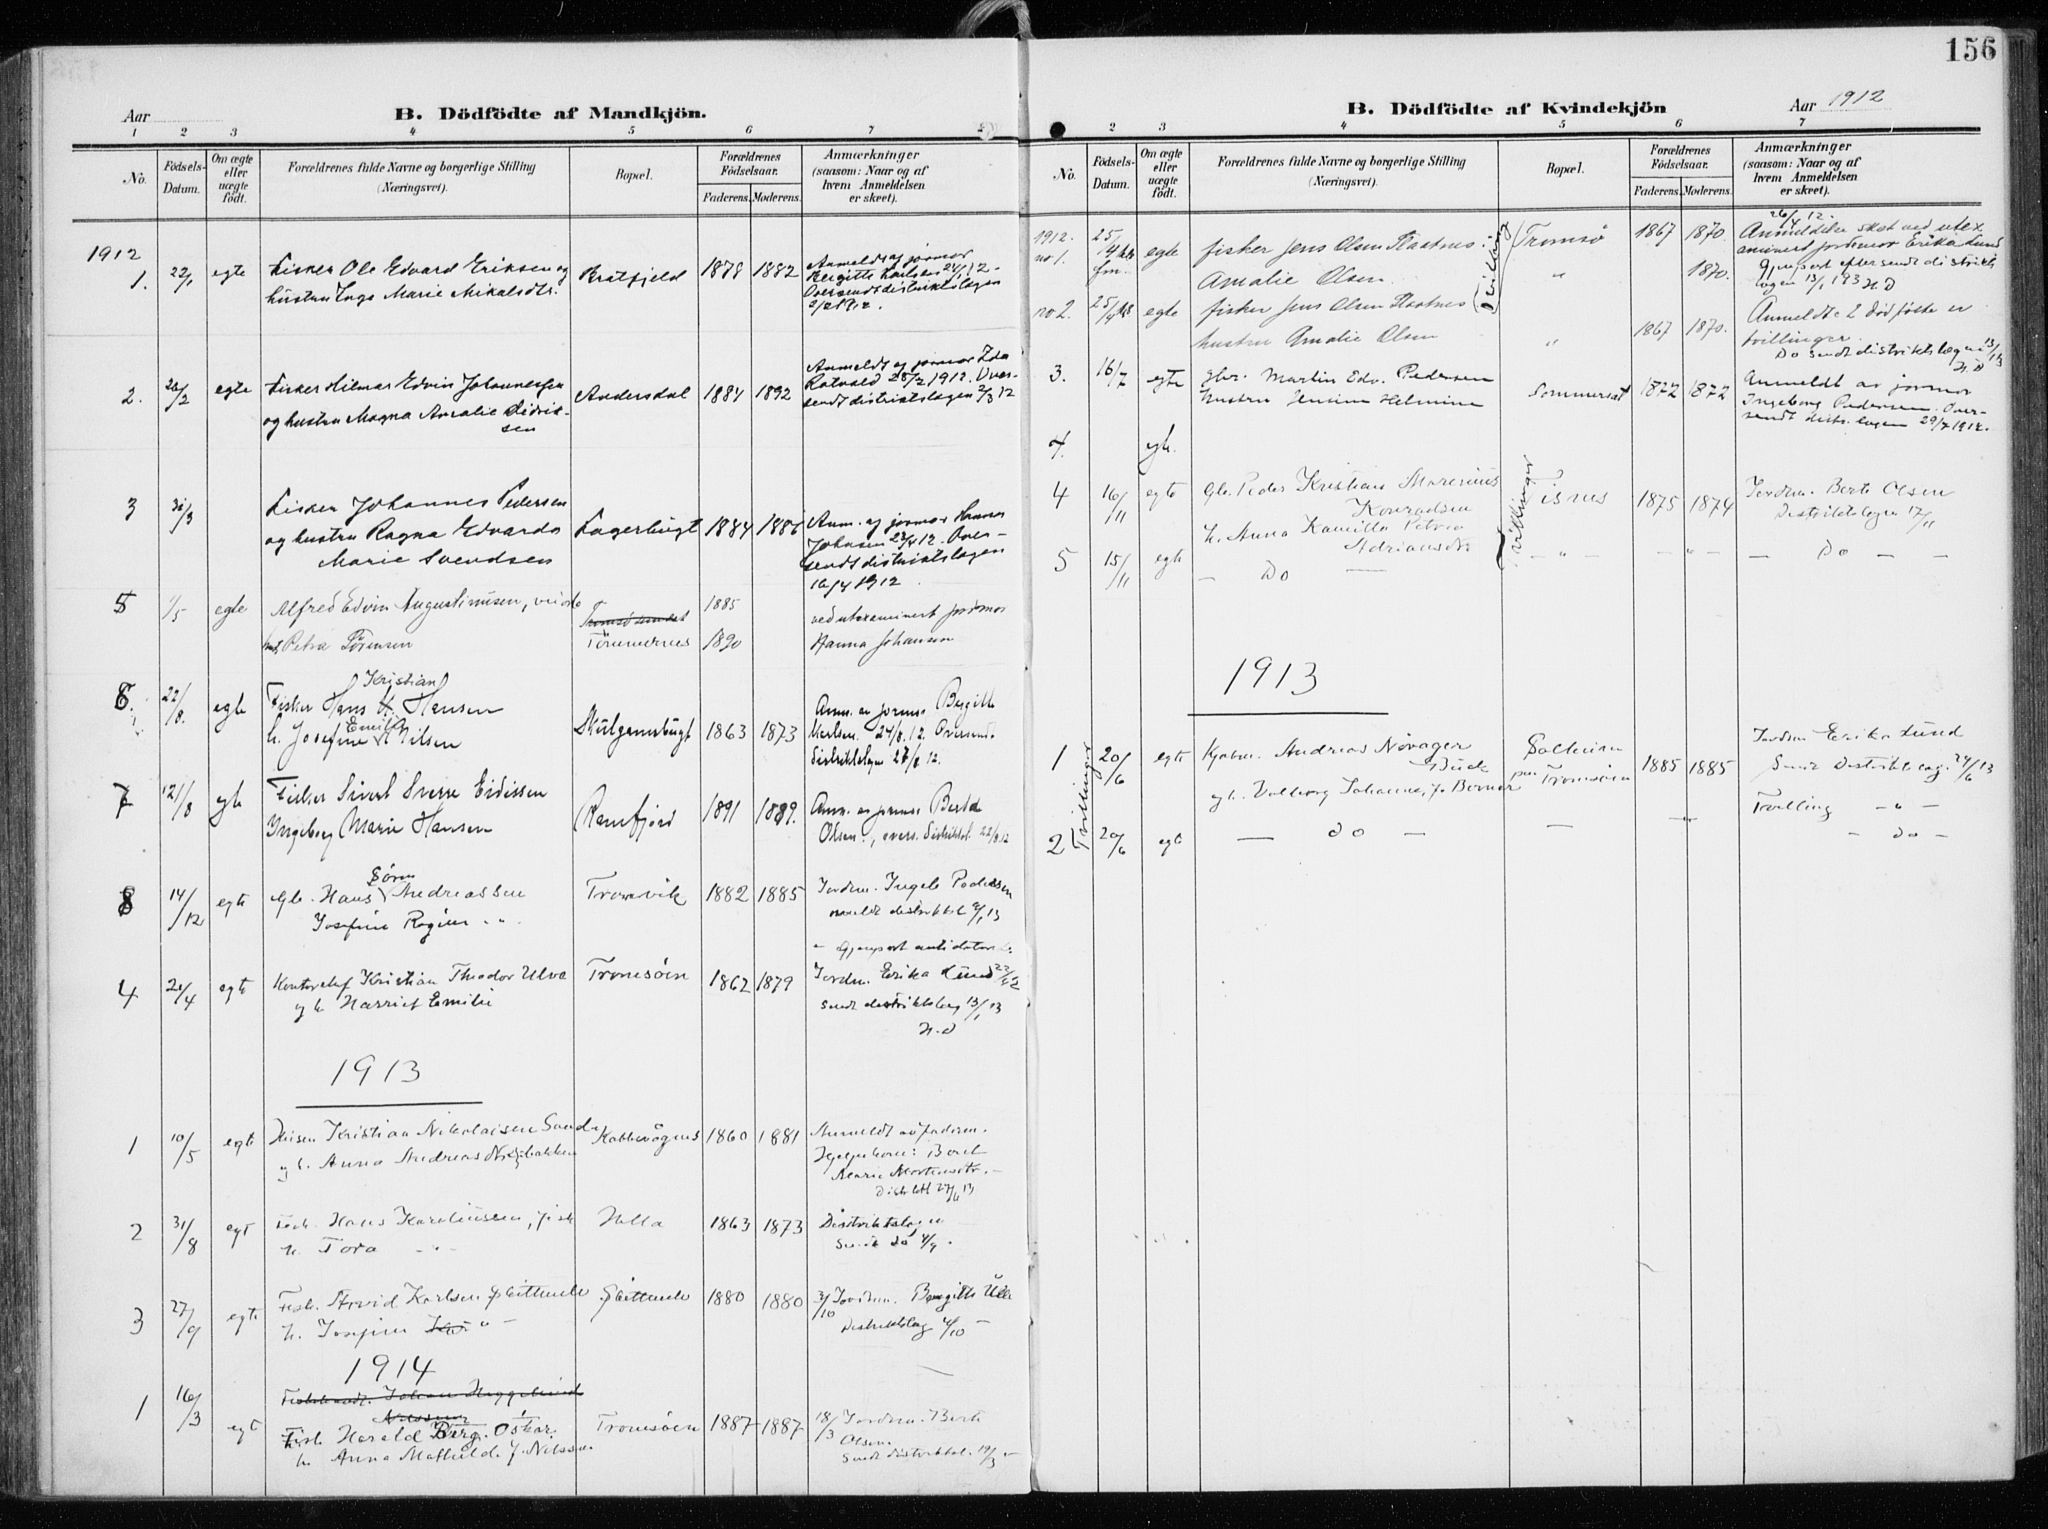 156
Aar
B. Dödfödte af Mandkjön.
1 2 3 4 5 6 7 8
No.
Fødsels-
Datum.
Om ægte
eller
uægte
født.
Forældrenes fulde Navne og borgerlige Stilling
(Næringsvei).
Bopæl.
Forældrenes
Fødselsaar.
Faderens. Moderens.
Anmærkninger
(saasom: Naar og af
hvem Anmeldelsen
er skeet).
1912
1. 22/1 egte Fisker Ole Edvard Eriksen og
hustru Inga Marie Mikalsdtr.
Bratfjeld 1878 1882
Anmeldt af jormor
Bergitte Karlsen 24/1 12.
Oversendt distriktslægen
2/2 1912.
2. 20/2 egte Fisker Hilmar Edvin Johannessen
og hustru Magna Amalie
Andersdal 1884 1892
Anmeldt af jormor Ida
25/2 1912. Over-
sendt distriktslægen 2/3 12
3 31/3 Fisker Johannes Pedersen
og hustru Ragna Edvarda
Marie Svendsen
Lagerbugt 1884 1886
Anm. af jormor Hanna
Johnsen 2/4 12. Over-
sendt distriktslægen
16/4 1912
5 1/5 egte Alfred Edvin Augustinusen,
hust. Petra Sørensen
Tømmernes
1885
1890
ved utexaminert jordmor
Hanna Johansen
6. 22/8. egte Kristian
Fisker Hans K. Hansen
Emilie
h. Josefine Nilsen
Skulgambugt 1863 1873
Anm. av jormor Bergitte
Karlsen. 24/8. 12. Oversendt
Distriktslægen 27/8 12.
7 12/8 egte Fisker Sivert Sverre Eidissen
Ingeborg Marie Hansen
Ramfjord 1891 1889.
Anm. av jormor Berta
Olsen., overs. Distriktsl. 22/8 12
8 14/12 egte Søren
Gbr. Hans Andreassen
Josefine Regine " "
Tromvik 1882 1885
Jordm. Ingeb Pedersen
anmeldt distriktsl 2/1 13
4 21/4 egte Kontorchef Kristian Theodor Ulve
og h. Harriet Emilie
Tromsøen 1862 1879
Jordm. Erika Lund 22/4 12
Sendt distriktslæg 13/1 13
H. D
1913
1 10/5 egte Kristian Nikolaisen Sand
og h. Anna Andreas
Kobbevågnes 1860 1881
Anmeldt av faderen.
Hjelpekone: Beret
Marie Mortensdtr. -
Distr.
2 31/8 egt Fisk. Hans Karelinssen, fisk
h. Tora - " -
Hella 1863 1873
Distriktslægen
Sendt Do 4/9.
3 27/9 egte Fisk. Arvid Karlsen
h. Josefine " -
1880 1880
3/10 Jordm. Bergitte
Distriktslæg 4/10 -
1914
1 16/3 egt
Fisk. Harald Berg. Oskar.
h. Anna Mathilde f. Nilssen
Tromsøen 1887 1887
18/3 Jordm. Berte
Olsen.
Sendt distriktsl. 19/3 -
B. Dödfödte af Kvindekjön
Aar 1912
2 3 4 5 6 7
No.
Fødsels-
Datum.
Om ægte
eller
uægte
født.
Forældrenes fulde Navne og borgerlige Stilling
(Næringsvei).
Bopæl.
Forældrenes
Fødselsaar.
Faderens. Moderens.
Anmærkninger
(saasom: Naar og af
hvem Anmeldelsen
er skeet).
1912.
no 1. 25/4 kl 8 fm. egte fisker Jens Olsen
Amalie Olsen.
Tvilling
Tromsø 1867 1870.
1870.
26/4 12.
Anmeldelse skeet ved utex
aminert jordmor Erika Lund
Gjenpart eftersendt distrikts
lægen 13/1 1913 H. D
no 2. 25/4 kl 8 egte fisker Jens Olsen
hustru Amalie Olsen
" 1867 1870.
Anmeldt 2 dødfødte er
tvillinger.
Do sendt distriktslægen 13/1 13
H. D
3. 16/7 egte gbr. Martin Edv. Pedersen
hustru Jensine Helmine
Sommersæt 1872 1872
Anmeldt av jormor
Ingeborg Pedersen. Over-
sendt distr. lægen 29/7 1912.
4. egte.
4 16/11 egte Gbr. Peder Kristian Marenius
Konradsen
h. Anna Kamilla Petrea
Adriansdtr
Tvillinger
Tisnes 1875 1874
Jordm. Berte Olsen
Distriktslægen 17/11
5 15/11 egte — Do — - " - - " - — Do — —
1913
1 20/6 egte Kjøbm. Andreas Nøvager
Buck
og h. Valborg Johanne, f. Berner
Tvillinger
Solheim
paa Tromsøen 1885 1885
Jordm Erika Lund
Sendt Distriktslæg. 24/6 13
Tvilling - " -
2 20/6 egt — do — — - do -